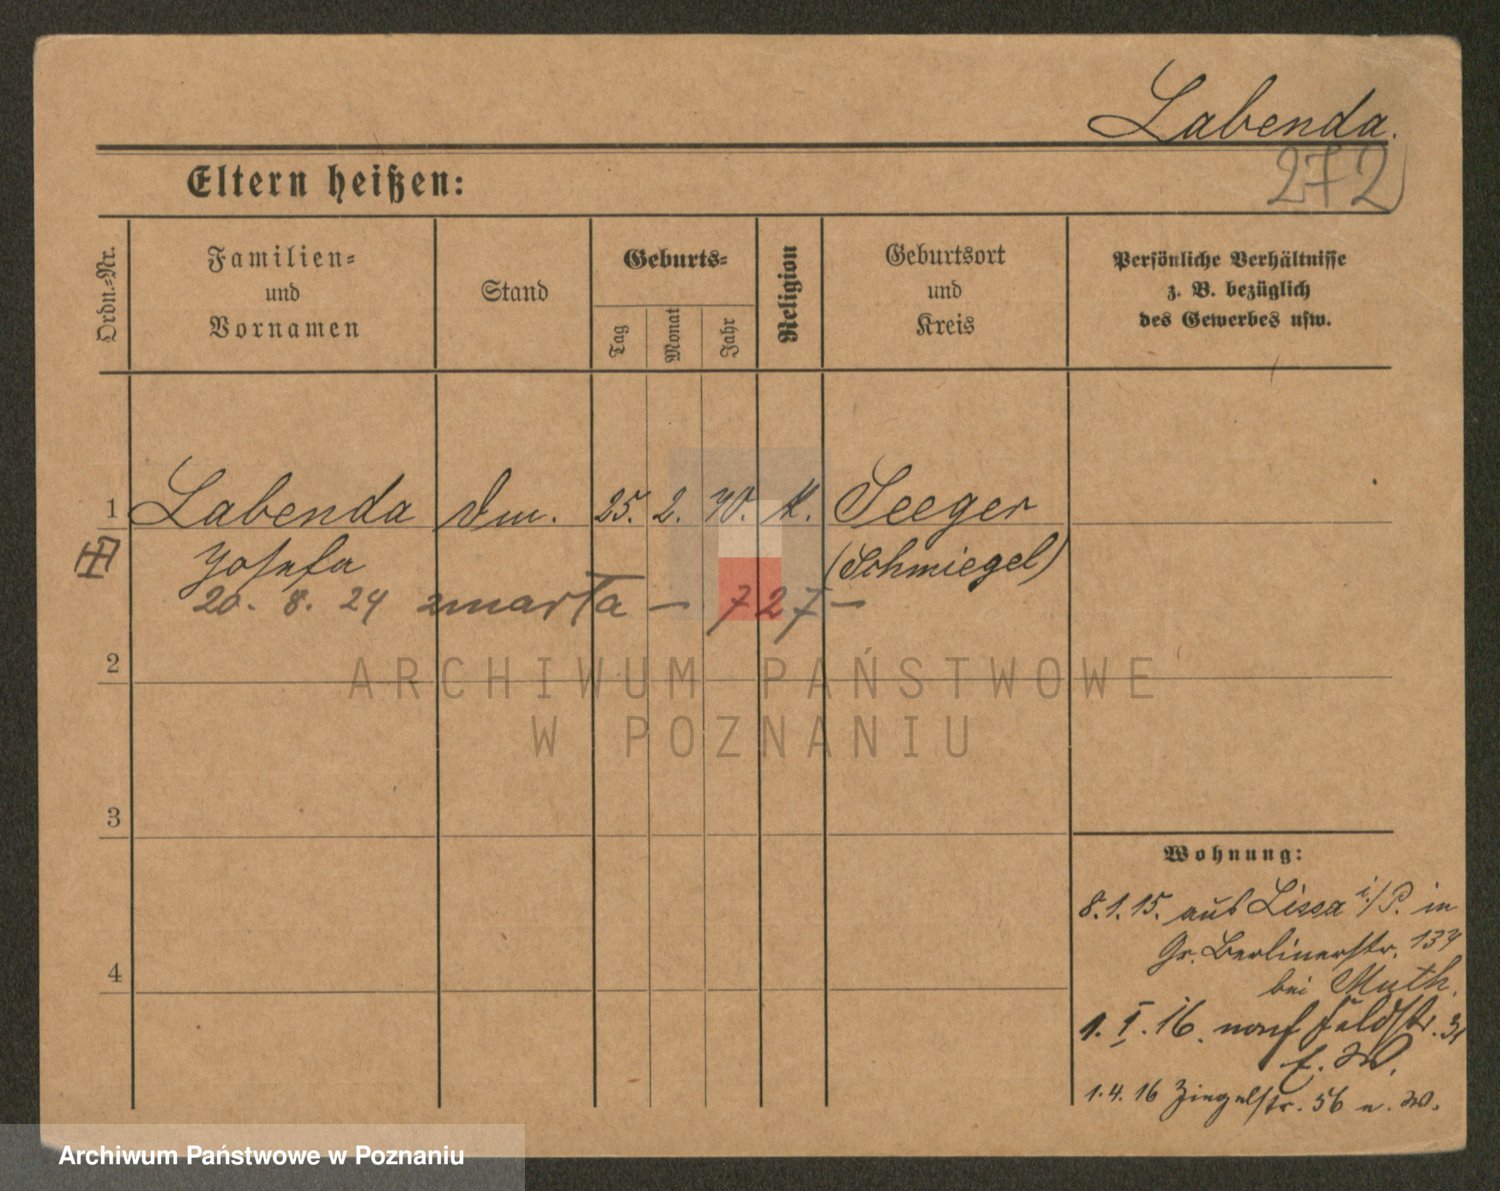 Labenda.
272
Eltern heißen:
Ordn.-Nr.
Familien-
und
Vornamen
Stand
Geburts-
Tag
Monat
Jahr
Religion
Geburtsort
und
Kreis
Persönliche Verhältnisse
z. B. bezüglich
des Gewerbes usw.
1 Labenda 25. 2. 40. K. Seeger
Josefa (Schmiegel)
20. 8. 24 zmarła — 727 —
2
ARCHIWUM PAŃSTWOWE
W POZNANIU
3
Wohnung:
8.1.15. aus Lissa i/P. in
Gr. Berlinerstr. 134
4
bei Muth.
1. I. 16. nach Feldstr. 31
1.4.16 Ziegelstr. 56 e. W.
Archiwum Państwowe w Poznaniu